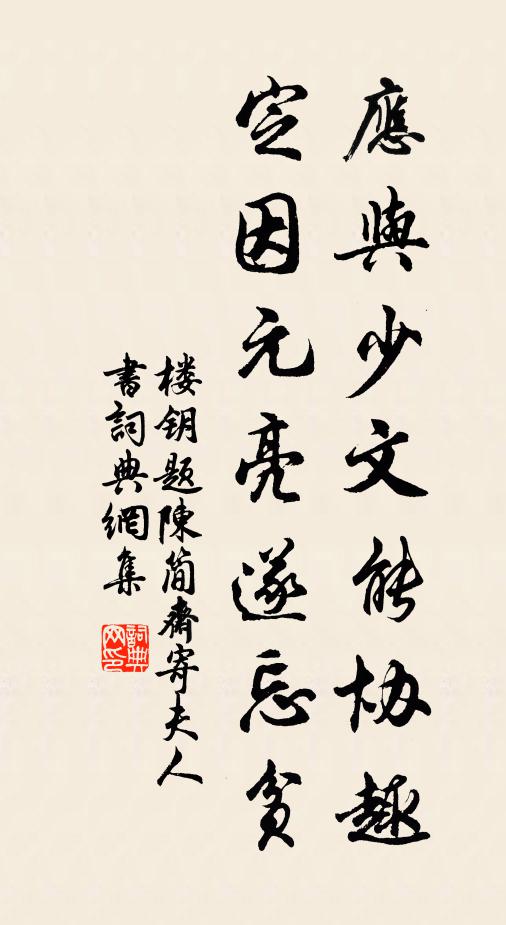 應與少文能协趣
定因元亮遂忘貧
楼钥题陳简齋寄夫人
書詞典網集
詞典网印